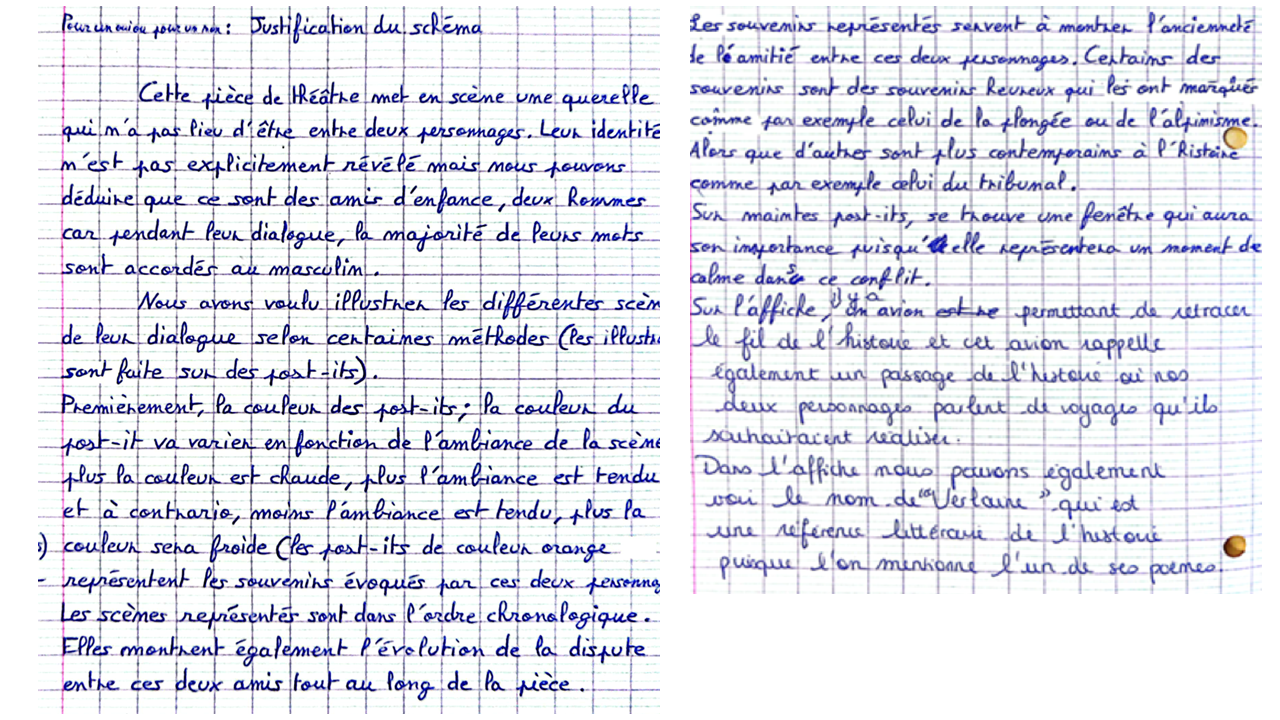 Pour un oui ou pour un non : Justification du schéma
Cette pièce de théâtre met en scène une querelle
qui n'a pas lieu d'être entre deux personnages. Leur identité
n'est pas explicitement révélé mais nous pouvons
déduire que ce sont des amis d'enfance, deux hommes
car pendant leur dialogue, la majorité de leurs mots
sont accordés au masculin.
Nous avons voulu illustrer les différentes scèn
de leur dialogue selon certaines méthodes (les illustr
sont faite sur des post-its).
Premièrement, la couleur des post-its; la couleur du
post-it va varier en fonction de l'ambiance de la scène
plus la couleur est chaude, plus l'ambiance est tendu
et à contrario, moins l'ambiance est tendu, plus la
s) couleur sera froide (les post-its de couleur orange
- représentent les souvenirs évoqués par ces deux personnag
Les scènes représentés sont dans l'ordre chronologique.
Elles montrent également l'évolution de la dispute
entre ces deux amis tout au long de la pièce.
Les souvenirs représentés servent à montrer l'ancienneté
de l'amitié entre ces deux personnages. Certains des
souvenirs sont des souvenirs heureux qui les ont marqués
comme par exemple celui de la plongée ou de l'alpinisme.
Alors que d'autres sont plus contemporains à l'histoire
comme par exemple celui du tribunal.
Sur maintes post-its, se trouve une fenêtre qui aura
son importance puisqu'elle représentera un moment de
calme dans ce conflit.
Sur l'affiche, il y a un avion est re permettant de retracer
le fil de l'histoire et cet avion rappelle
également un passage de l'histoire où nos
deux personnages parlent de voyages qu'ils
souhaitaient réaliser.
Dans l'affiche nous pouvons également
voir le nom de "Verlaine" qui est
une référence littéraire de l'histoire
puisque l'on mentionne l'un de ses poèmes.